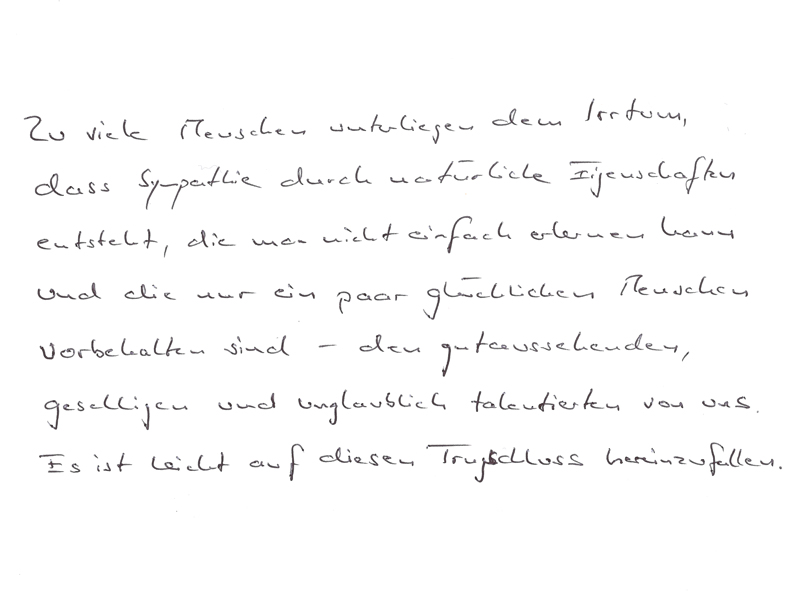 Zu viele Menschen unterliegen dem Irrtum,
dass Sympathie durch natürliche Eigenschaften
entsteht, die man nicht einfach erlernen kann
und die nur ein paar glücklichen Menschen
vorbehalten sind – den gutaussehenden,
geselligen und unglaublich talentierten von uns.
Es ist leicht auf diesen Trugschluss hereinzufallen.